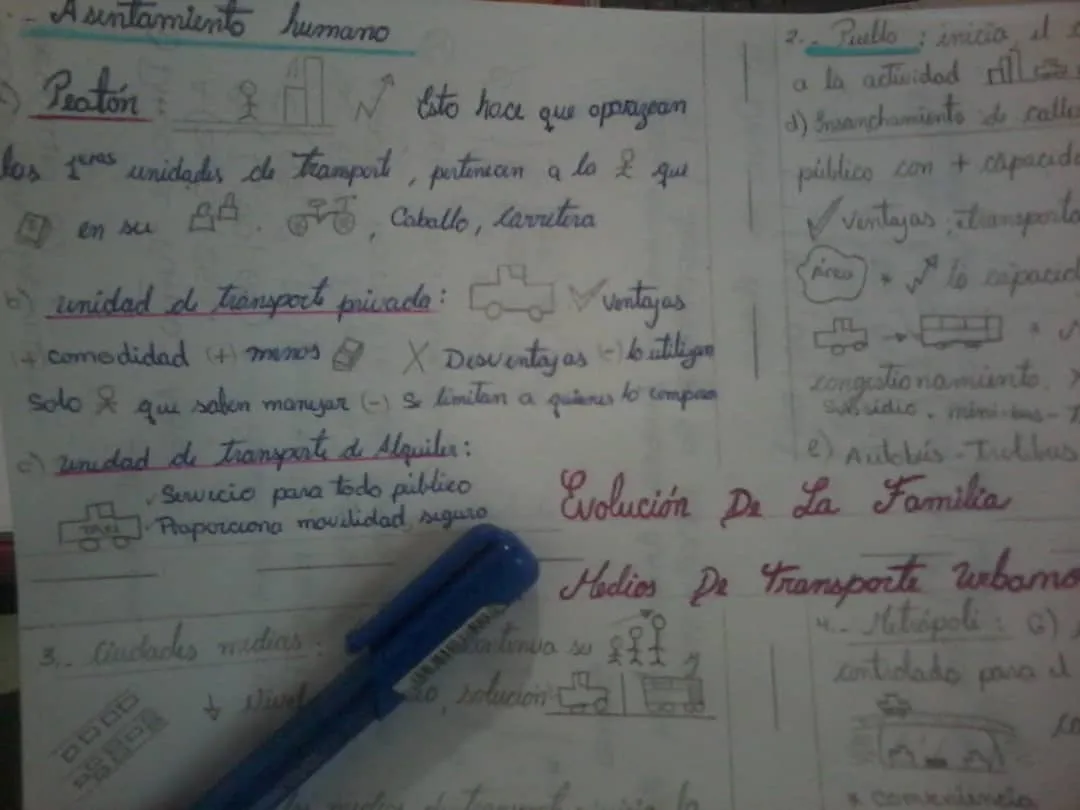 - Asentamiento humano
Peatón:
Esto hace que aparazcan
las 1eras unidades de transport, pertenecen a la que
en su . , Caballo, Carretera
b) unidad d transport privada: ventajas
+ comodidad (+) menos X Desventajas (-) lo utilizan
solo que saben manejar (-) Se limitan a quienes lo compran
c) unidad de transporte de Alquiler:
. Servicio para todo público
TAXI . Proporciona movilidad, seguro
2.- Pueblo: inicia el
a la actividad
d) Insanchamiento de calle
público con + capacid
ventajas: transport
Área + la capacid
+
congestionamiento. X
Subsidio. mini-bus-T
e) Autobús - Trolibus
Evolución De La Familia
Medios De Transporte Urbano
3.- Ciudades medias: continua su
↓ Nivel , solución
medios d transport
4.- Metrópoli: G)
controlado para el
* conveniencia